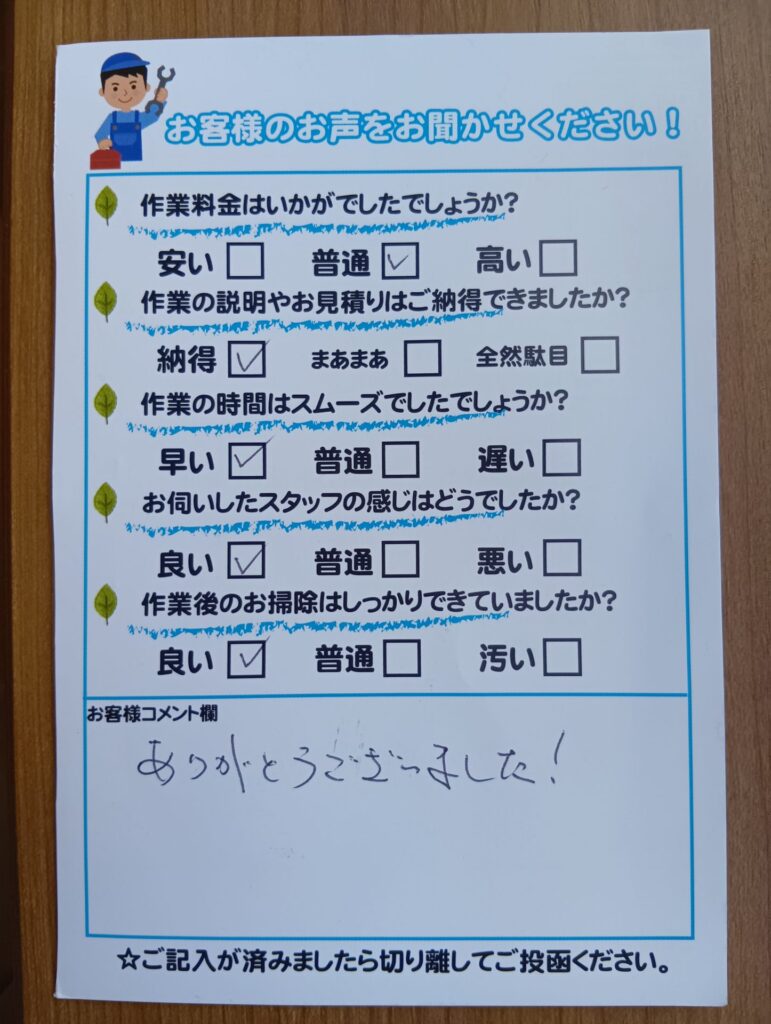 お客様のお声をお聞かせください！
作業料金はいかがでしたでしょうか？
安い □ 普通 ☑ 高い □
作業の説明やお見積りはご納得できましたか？
納得 ☑ まあまあ □ 全然駄目 □
作業の時間はスムーズでしたでしょうか？
早い ☑ 普通 □ 遅い □
お伺いしたスタッフの感じはどうでしたか？
良い ☑ 普通 □ 悪い □
作業後のお掃除はしっかりできていましたか？
良い ☑ 普通 □ 汚い □
お客様コメント欄
ありがとうございました！
☆ご記入が済みましたら切り離してご投函ください。